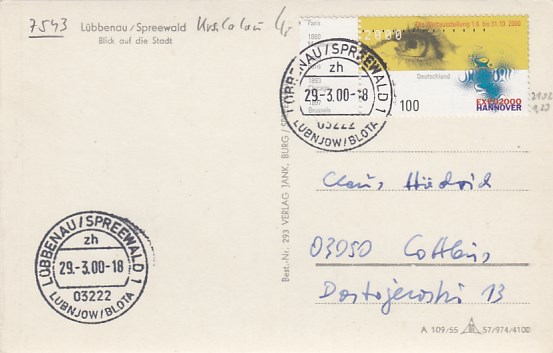 7543
Lübbenau / Spreewald
Blick auf die Stadt
Die Weltausstellung 1.6. bis 31.10.2000
2000
Paris
1880
Deutschland
100
EXPO2000
HANNOVER
LÜBBENAU/SPREEWALD 1
zh
29.-3.00-18
03222
LUBNJOW/BLOTA
LÜBBENAU/SPREEWALD 1
zh
29.-3.00-18
03222
LUBNJOW/BLOTA
Best.-Nr. 293 VERLAG JANK, BURG / SPREEWALD
Claus
03050 Cottbus
Dostojewski 13
A 109/55 57/974/4100